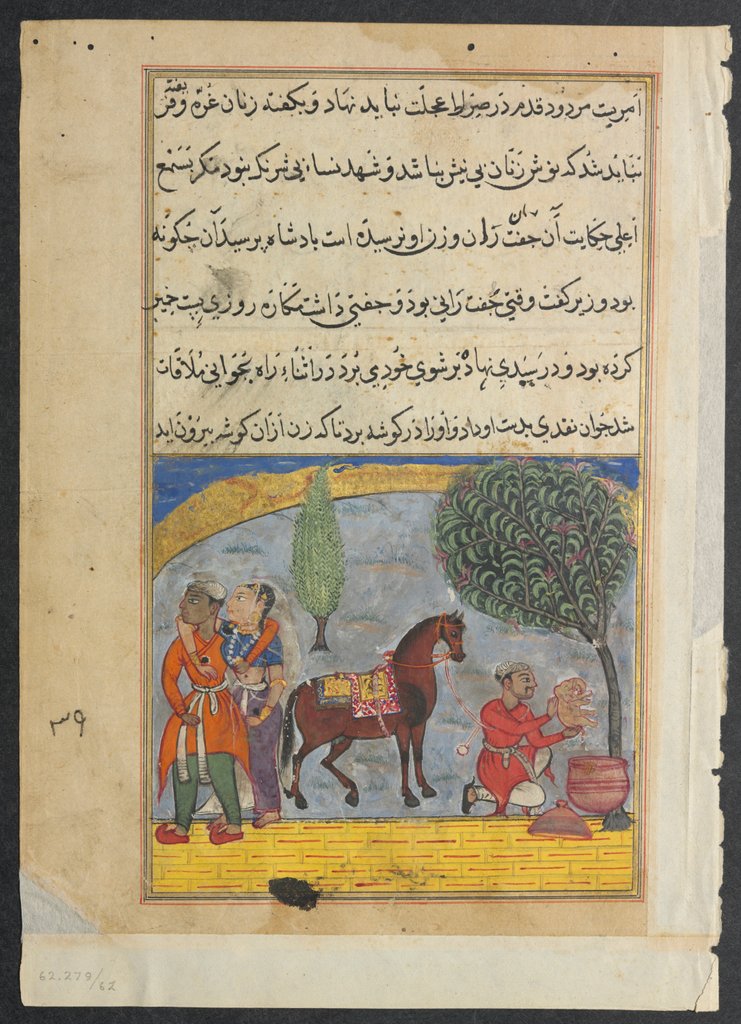 امریت مردود قدم در صراط عجلت نباید نهاد و بگفته زنان غره و فریفته
نباید شد که نوش زنان بی نیش نباشد و شهد نساء بی شرنک نبود مکر بسمع
اعلی حکایت آن جفت ران و زن او نرسیده است بادشاه برسید آن چکونه
بود وزیر کفت وقتی جفت رانی بود و جفتی داشت مکاره روزی خیر
کرده بود و در سبدی نهاده بر شوی خود می برد در اثناء راه بجوانی ملاقات
شد جوان نقدی بدست او داد و او را در کوشه برد تا که زن ازان کوشه بیرون اید
۳۹
62.279/62